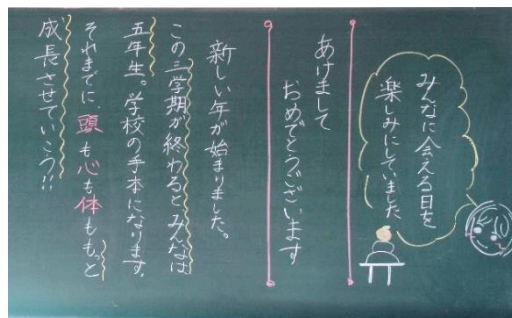 みんなに会える日を
楽しみにしていました
あけまして
おめでとうございます
新しい年が始まりました。
この三学期が終わるとみんなは
五年生。学校の手本になります。
それまでに、頭も心も体ももっと
成長させていこう!!